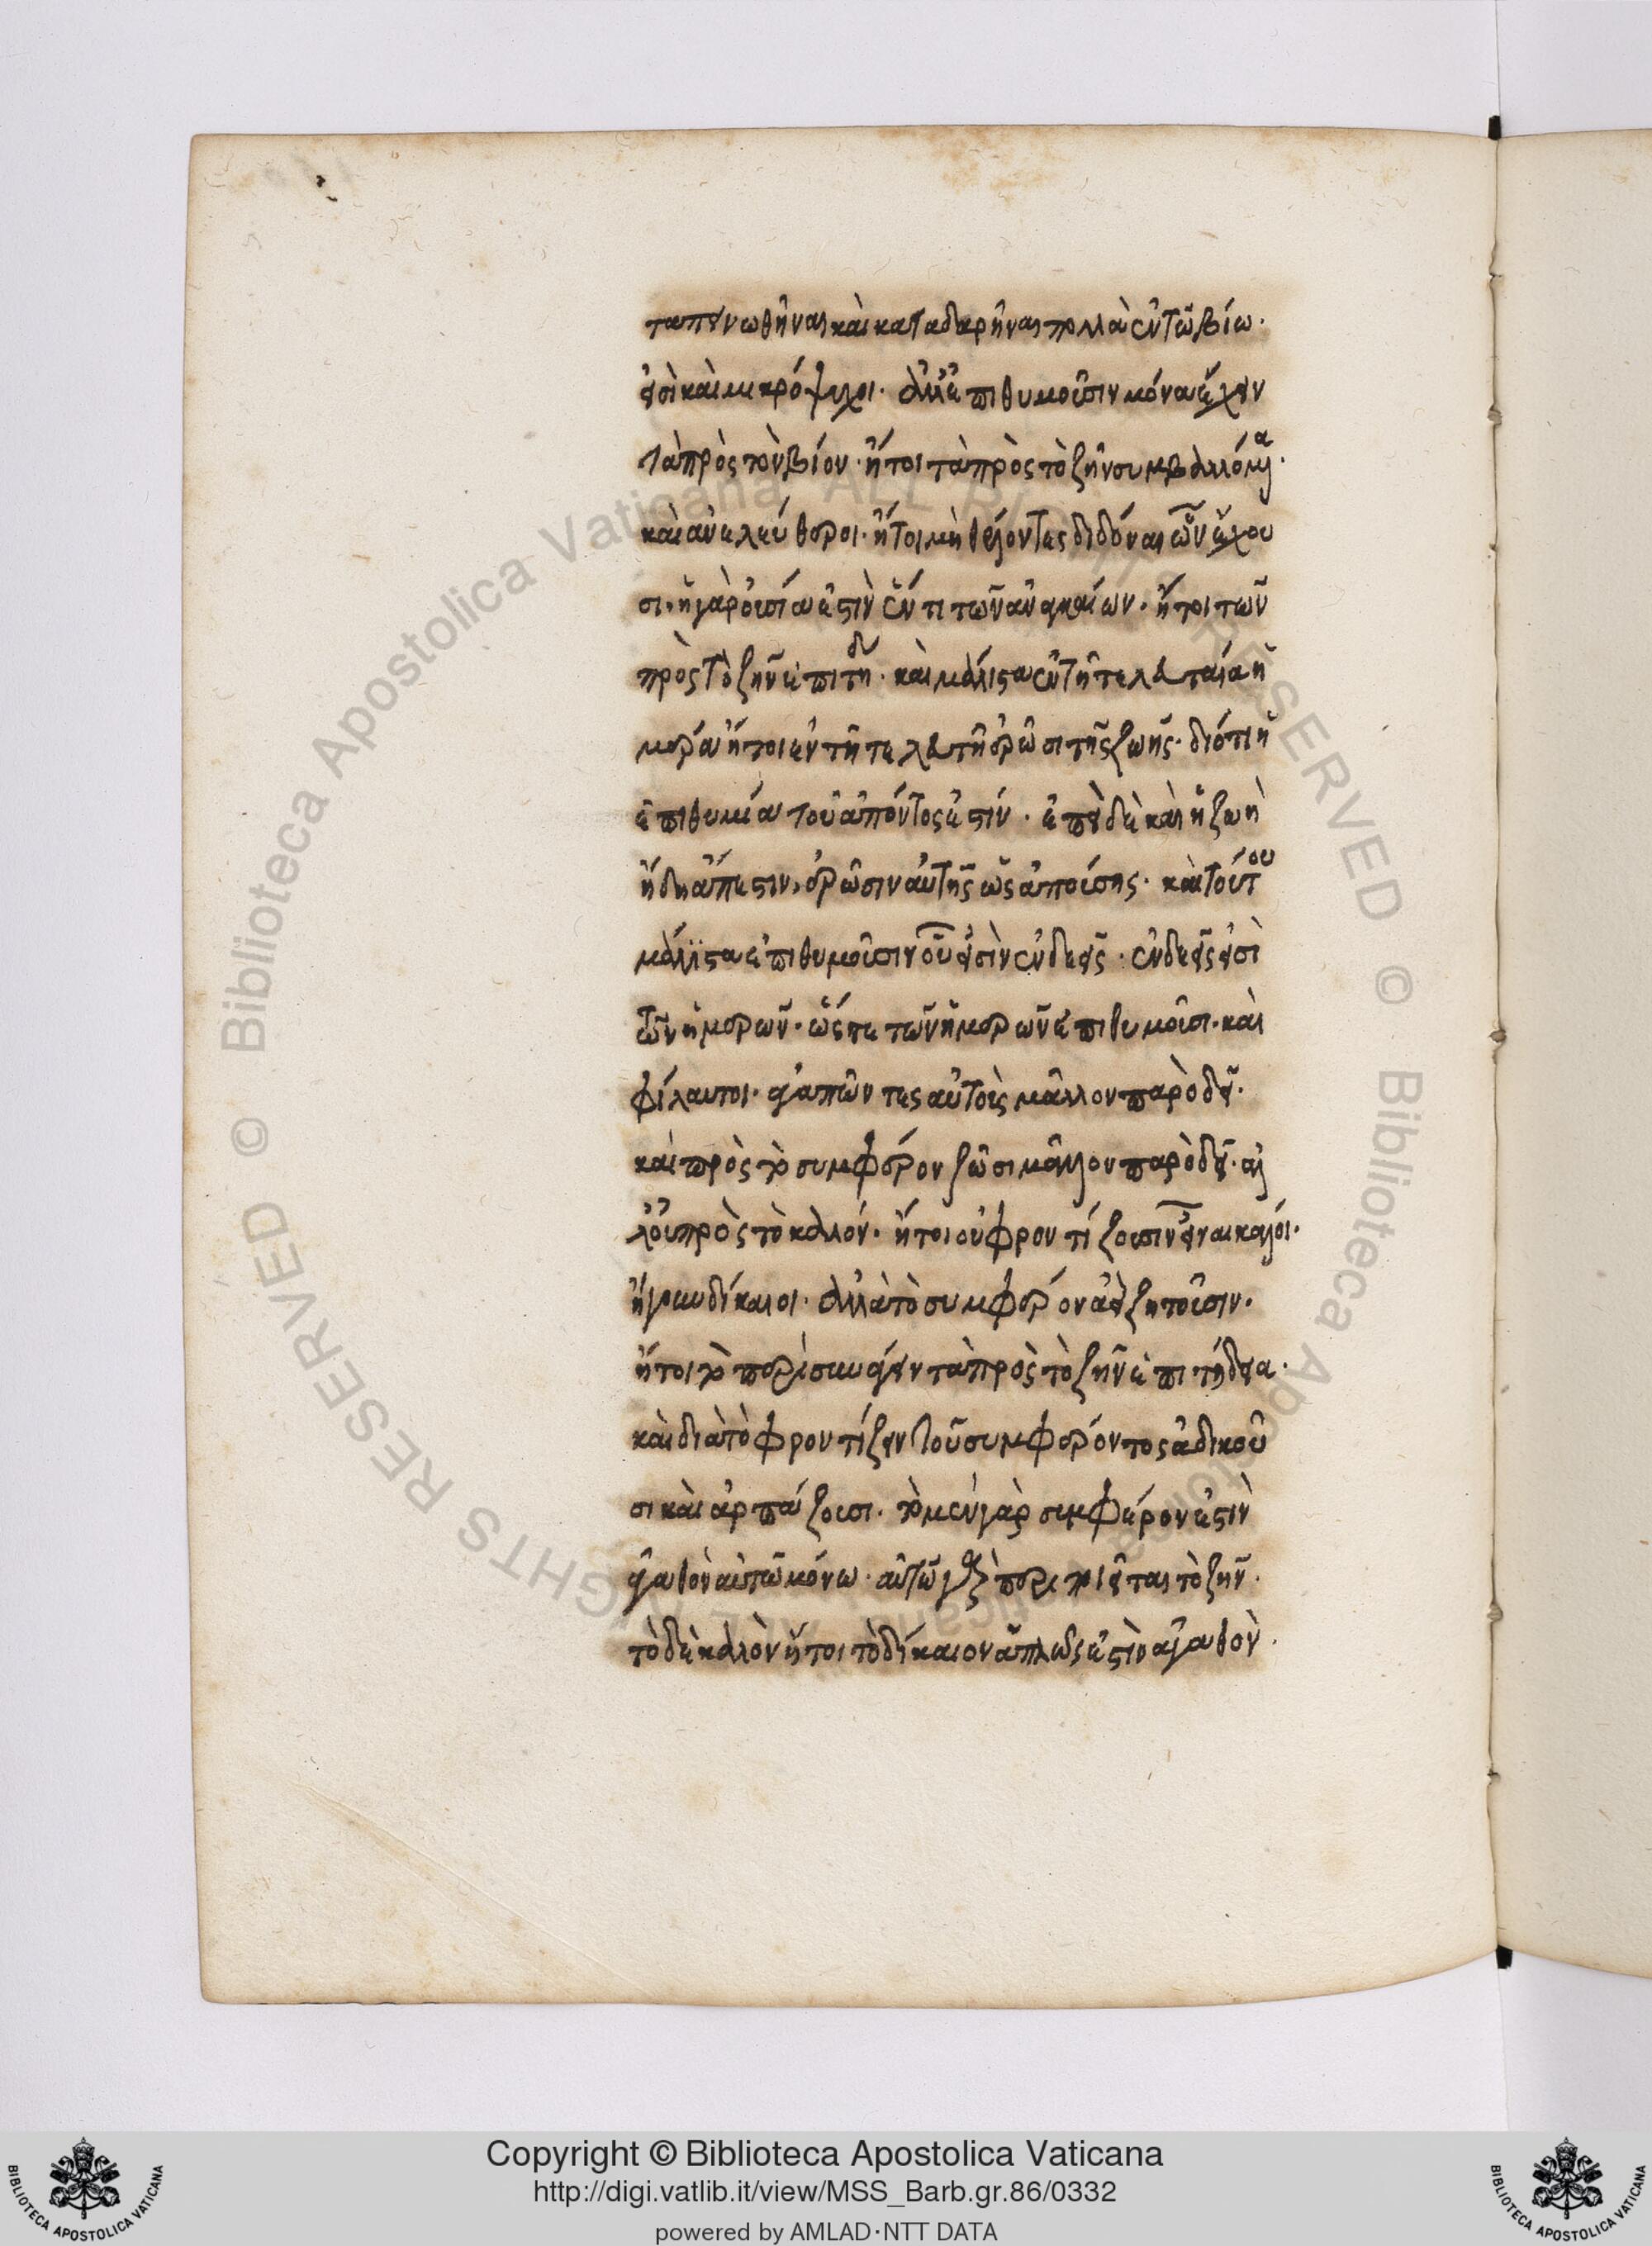 ταπεινωθῆναι καὶ καταδαρῆναι πολλὰ ἐν τῶ βίω·
εἰσὶ καὶ μικρόψυχοι· ἀλλ' ἐπιθυμοῦσιν μόνα ἔχειν
τὰ πρὸς τὸν βίον· ἤτοι τὰ πρὸς τὸ ζῆν συμβαλλόμενα·
καὶ ἀνελεύθεροι· ἤτοι μὴ θέλοντες διδόναι ὧν ἔχου
σι· ἡ γὰρ οὐσία ἐστὶν ἕν τι τῶν ἀναγκαίων· ἤτοι τῶν
πρὸς τὸ ζῆν ἐπιτηδ· καὶ μάλιστα ἐν τῆ τελευταία ἡ
μέρα ἤτοι ἐν τῆ τελευτῆ ὁρῶσι τῆς ζωῆς· διότι ἡ
ἐπιθυμία τοῦ ἀπόντος ἐστίν· ἐπεὶ δὲ καὶ ἡ ζωὴ
ἤδη ἄπεστιν, ὁρῶσιν αὐτῆς ὡς ἀπούσης· καὶ τούτου
μάλιστα ἐπιθυμοῦσιν οὗ εἰσὶν ἐνδεεῖς· ἐνδεεῖς εἰσὶ
τῶν ἡμερῶν· ὥστε τῶν ἡμερῶν ἐπιθυμοῦσι· καὶ
φίλαυτοι· ἀγαπῶντες αὐτοὺς μᾶλλον παρὸ δεῖ·
καὶ πρὸς τὸ συμφέρον ζῶσι μᾶλλον παρὸ δεῖ· ἀλ
λ' οὐ πρὸς τὸ καλόν· ἤτοι οὐ φροντίζουσιν εἶναι καλοί·
ἤγουν δίκαιοι· ἀλλὰ τὸ συμφέρον ἀεὶ ζητοῦσιν·
ἤτοι τὸ περισυνάγειν τὰ πρὸς τὸ ζῆν ἐπιτήδεια·
καὶ διὰ τὸ φροντίζειν τοῦ συμφέροντος ἀδικοῦ
σι καὶ ἁρπάζουσι· τὸ μὲν γὰρ συμφέρον ἐστὶν
ἀγαθὸν αὐτῶ μόνω· αὐτῶ γὰρ περιποιεῖται τὸ ζῆν·
τὸ δὲ καλὸν ἤτοι τὸ δίκαιον ἁπλῶς ἐστὶν ἀγαθὸν·
Copyright © Biblioteca Apostolica Vaticana
http://digi.vatlib.it/view/MSS_Barb.gr.86/0332
powered by AMLAD·NTT DATA